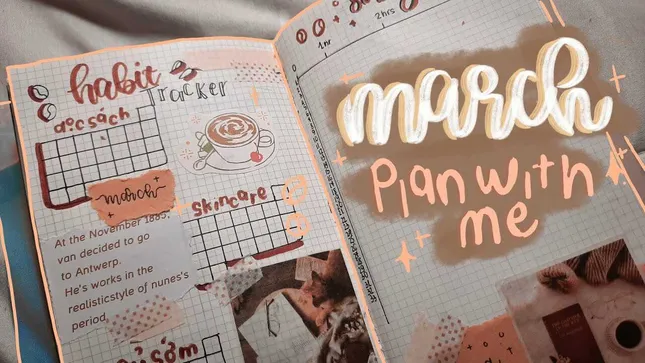 habit
tracker
đọc sách
march
At the November 1885,
van decided to go
to Antwerp.
He's works in the
realisticstyle of nunes's
period,
skincare
1hr
2hrs
march
Plan with
me